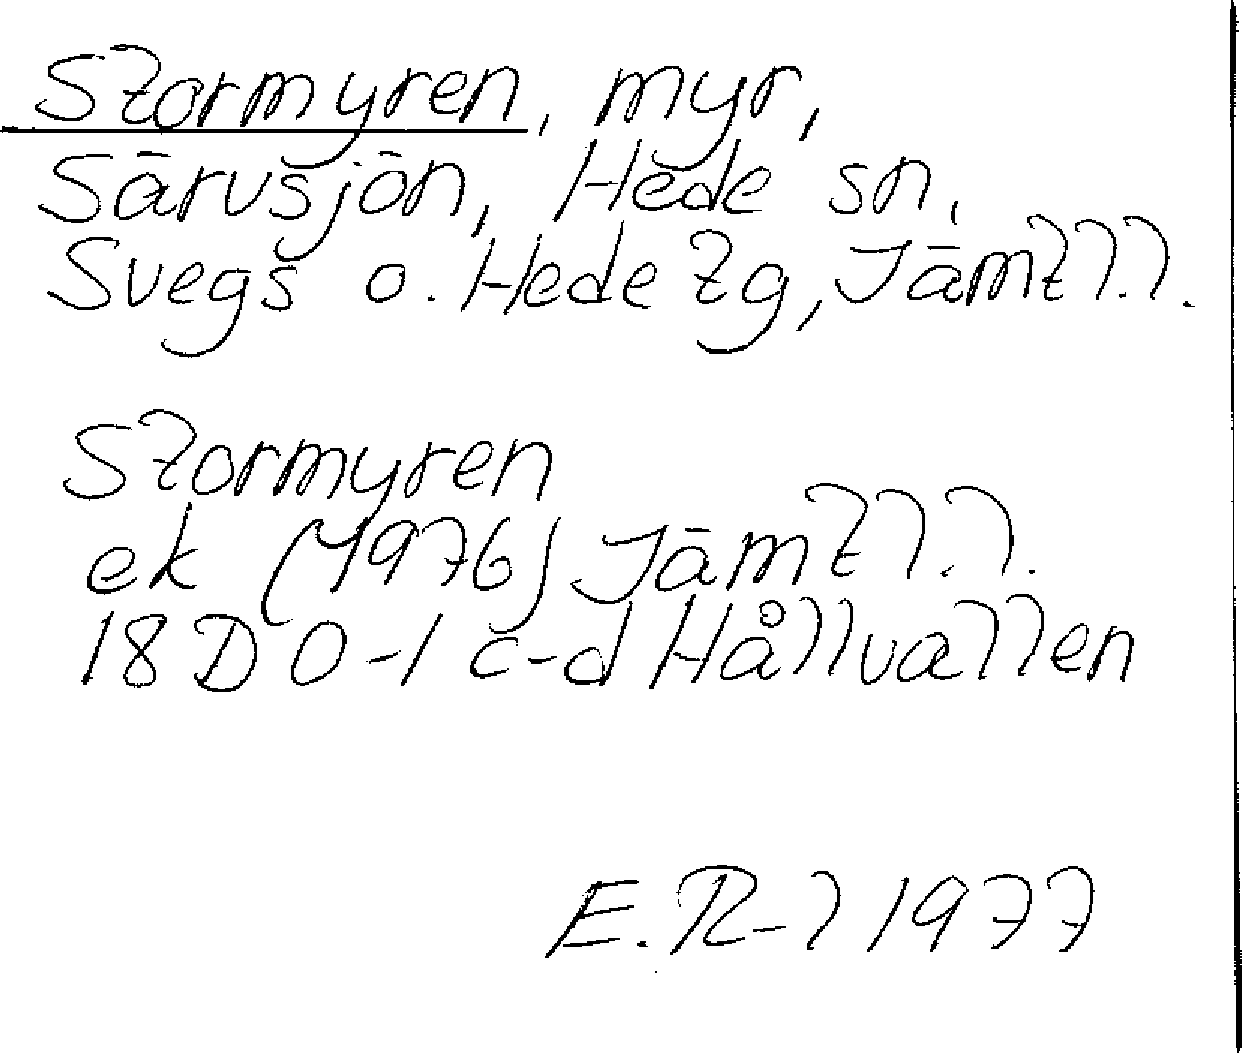 Stormyren, myr,
Särvsjön, Hede sn,
Svegs o. Hede tg, Jämtl.l.
Stormyren
ek (1976) Jämtl.l.
18D 0-1 c-d Hållvallen
E. R-l 1977